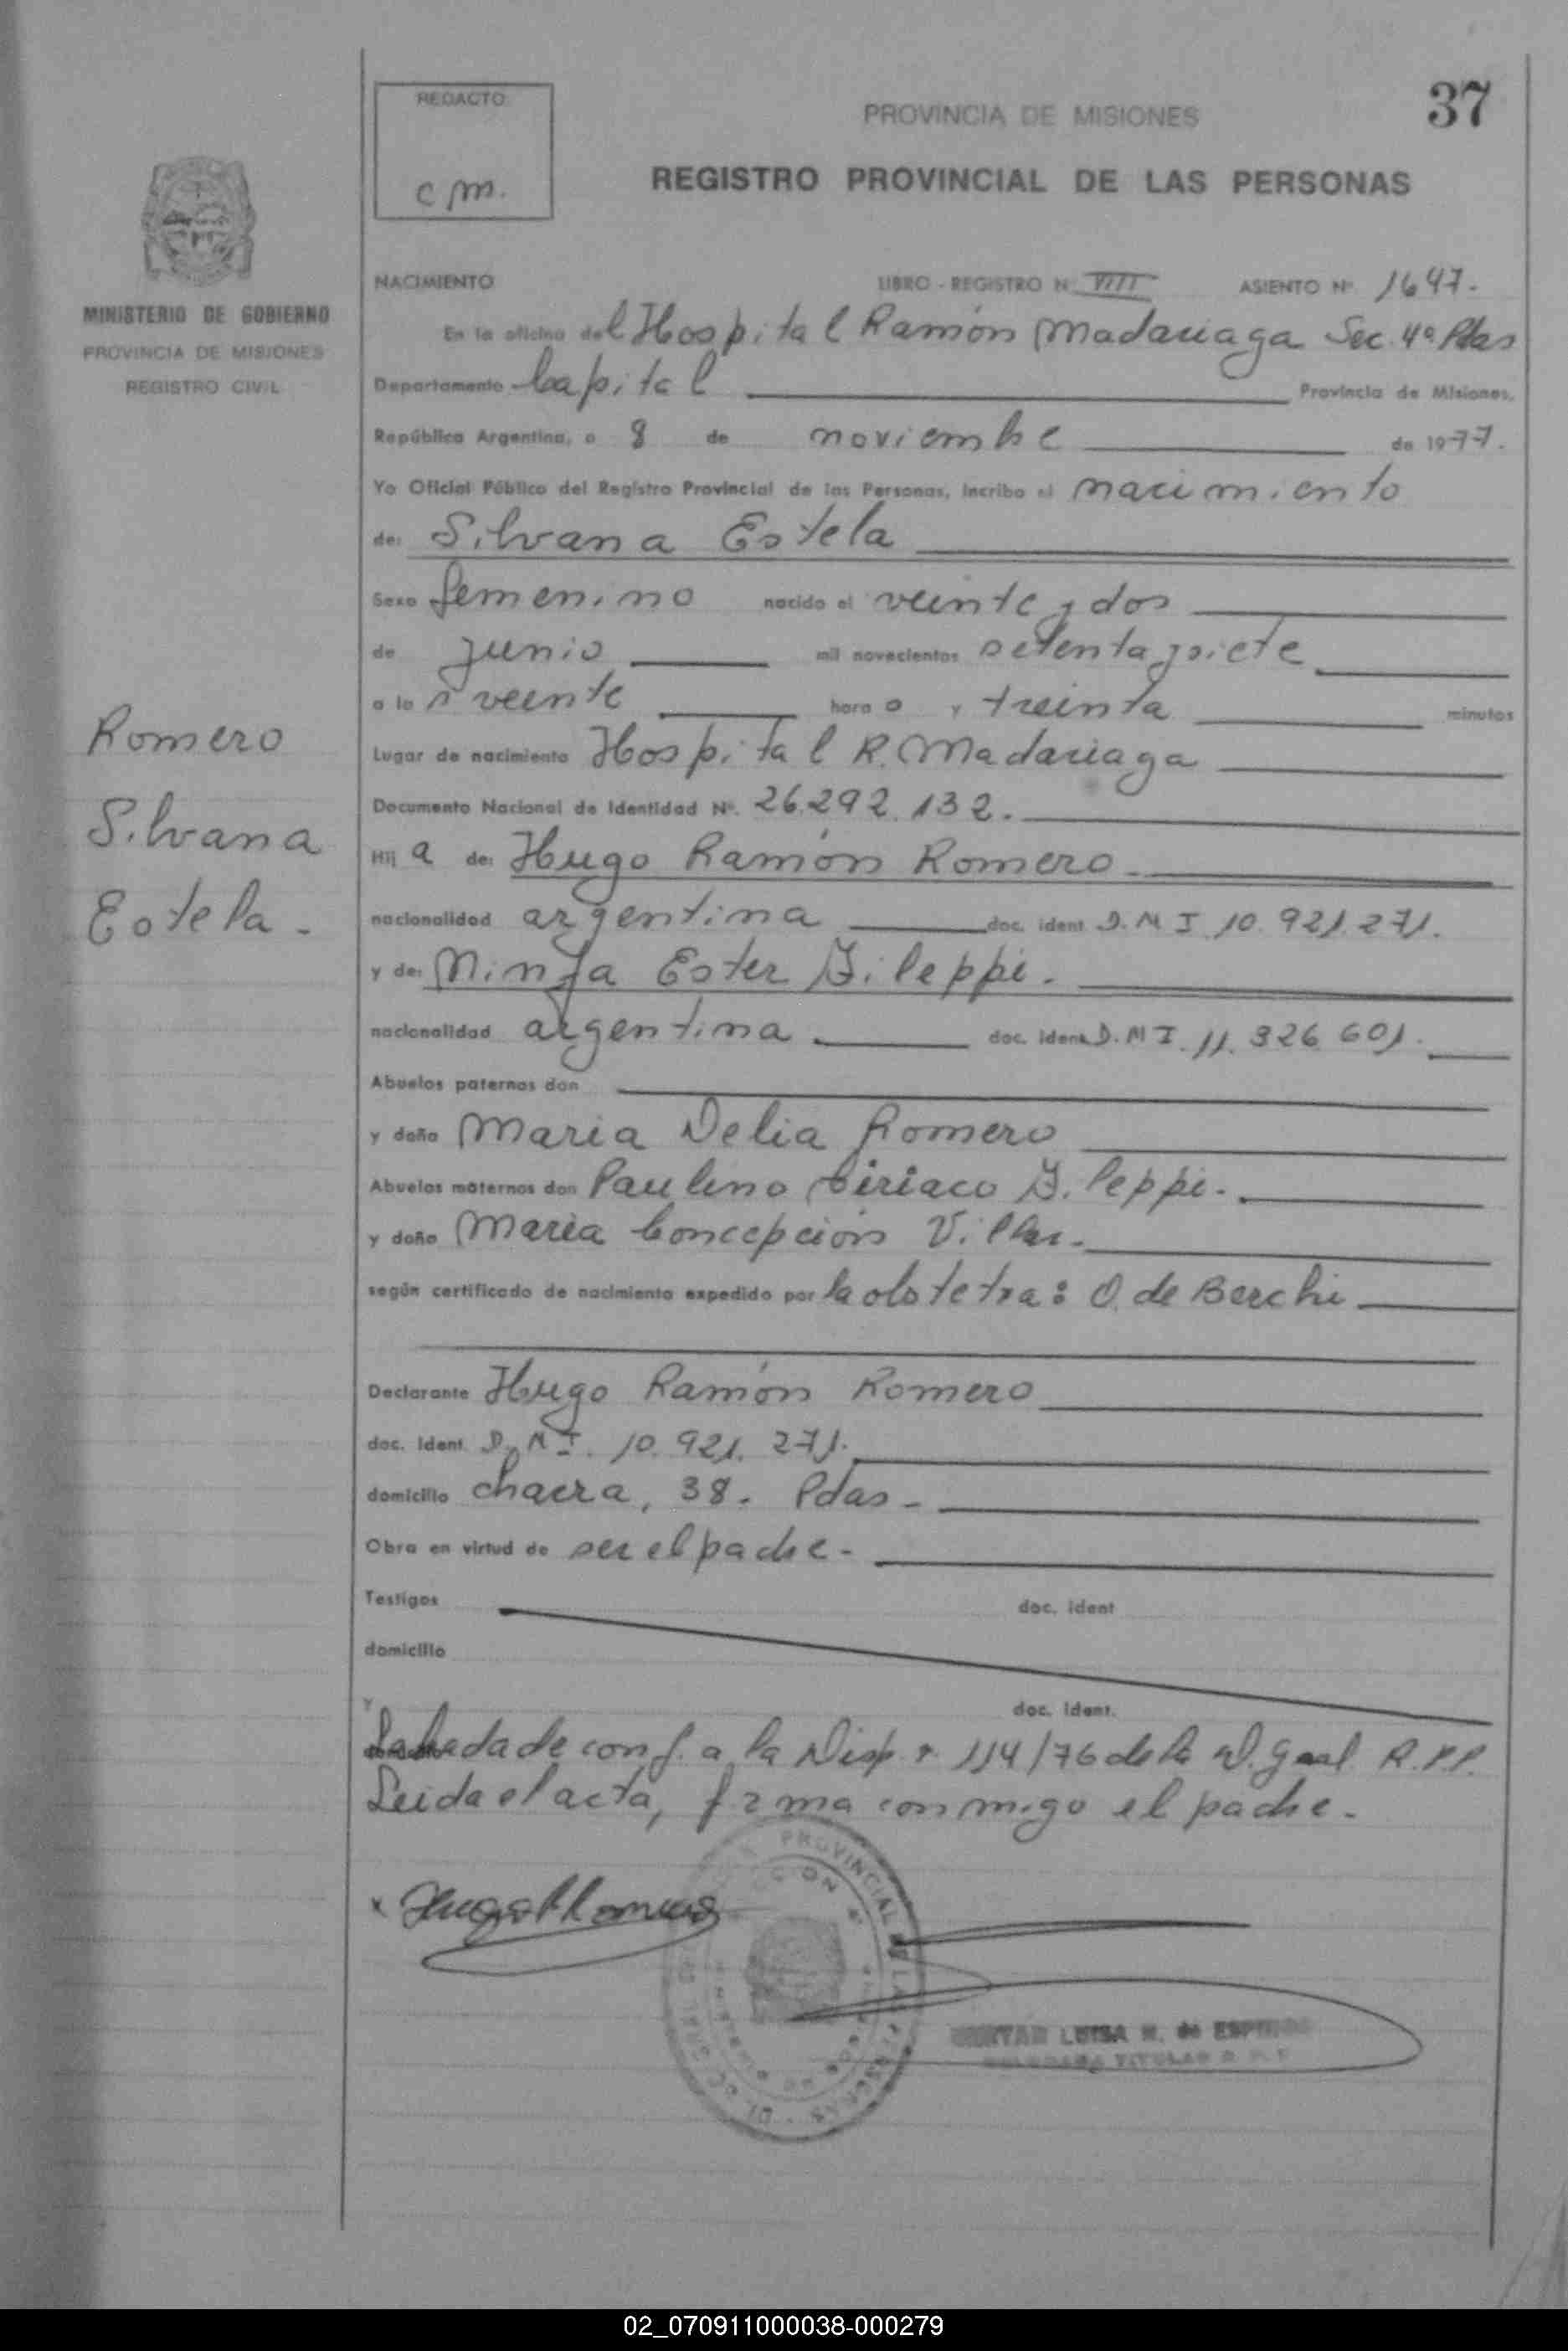 37
REDACTO
c m.
PROVINCIA DE MISIONES
REGISTRO PROVINCIAL DE LAS PERSONAS
MINISTERIO DE GOBIERNO
PROVINCIA DE MISIONES
REGISTRO CIVIL
NACIMIENTO LIBRO - REGISTRO Nº VIII ASIENTO Nº 1647.
En la oficina del Hospital Ramón Madariaga Sec. 4ª Pdas
Departamento Capital Provincia de Misiones,
República Argentina, a 8 de noviembre de 1977.
Yo Oficial Público del Registro Provincial de las Personas, incribo el nacimiento
de: Silvana Estela
Sexo femenino nacido el veinte y dos
de junio mil novecientos setenta y siete
a las veinte hora o y treinta minutos
Lugar de nacimiento Hospital R. Madariaga
Documento Nacional de Identidad Nº. 26.292.132.
Hij a de: Hugo Ramón Romero
nacionalidad argentina doc. ident D.N.I. 10.921.271.
y de: Ester
nacionalidad argentina doc. ident D.N.I. 11.326.601.
Abuelos paternos don
y doña Maria Delia Romero
Abuelos maternos don Paulino Ciriaco
y doña Maria Concepción
según certificado de nacimiento expedido por la obstetra: O. de Berchi
Declarante Hugo Ramón Romero
doc. ident. D.N.I. 10.921.271.
domicilio chacra, 38. Pdas -
Obra en virtud de ser el padre -
Testigos doc. ident
domicilio
y doc. ident.
Labrada de conf. a la Disp. 114/76 de la D. Gral R.P.P.
Leida el acta, firma conmigo el padre -
Romero
Silvana
Estela -
LUISA de
TITULAR
02_070911000038-000279